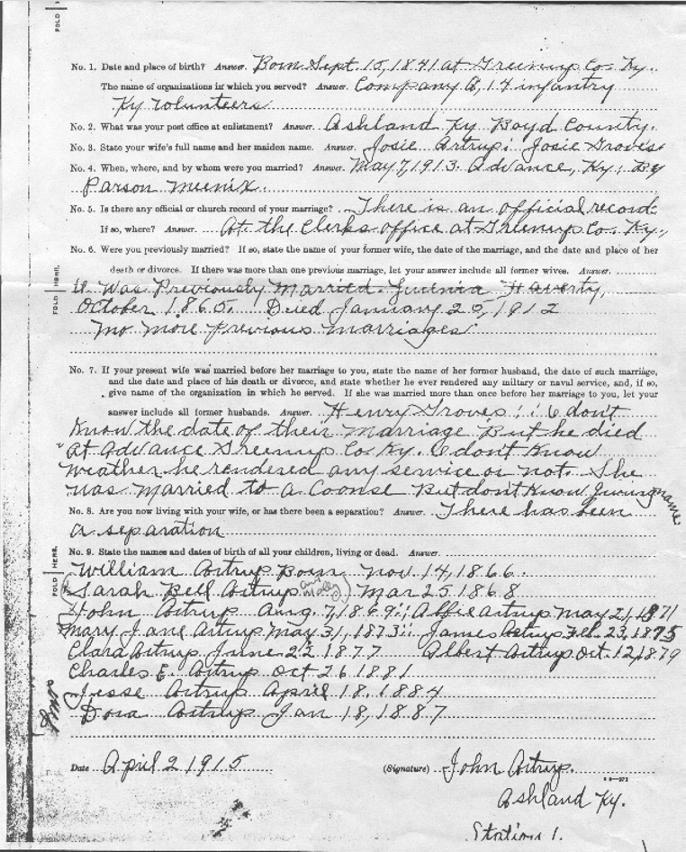 FOLD
No. 1. Date and place of birth? Answer. Born Sept 15, 1841 at Greenup Co. Ky.
The name of organizations in which you served? Answer. Company A, 14 infantry
Ky Volunteers
No. 2. What was your post office at enlistment? Answer. Ashland Ky Boyd County.
No. 3. State your wife's full name and her maiden name. Answer. Josie Artrup; Josie Groves
No. 4. When, where, and by whom were you married? Answer. May 7, 1913. Advance, Ky; By
Parson
No. 5. Is there any official or church record of your marriage? Answer. There is an official record.
If so, where? Answer. At the Clerks office at Greenup Co. Ky.,
No. 6. Were you previously married? If so, state the name of your former wife, the date of the marriage, and the date and place of her
death or divorce. If there was more than one previous marriage, let your answer include all former wives. Answer.
FOLD HERE.
Was Previously Married Haverty,
October 1865. Died January 1912
No more Previous marriages
No. 7. If your present wife was married before her marriage to you, state the name of her former husband, the date of such marriage,
and the date and place of his death or divorce, and state whether he ever rendered any military or naval service, and, if so,
give name of the organization in which he served. If she was married more than once before her marriage to you, let your
answer include all former husbands. Answer. Henry Groves; I dont
Know the date of their marriage But he died
at Advance Greenup Co. Ky. I dont Know
weather he rendered any service or not. She
was Married to a But dont Know name
No. 8. Are you now living with your wife, or has there been a separation? Answer. There has been
a separation
No. 9. State the names and dates of birth of all your children, living or dead. Answer.
FOLD HERE.
William Artrup Born Nov. 14, 1866.
Sarah Bell Artrup Mar 25 1868
John Artrup Aug. 7, 1869; Allie Artrup May 21, 1871
Mary Jane Artrup May 31, 1873; James Artrup Feb. 23, 1875
Clara Artrup June 22 1877 Albert Artrup Oct. 12, 1879
Charles E. Artrup Oct 26 1881
Jesse Artrup April 18, 1884
Dora Artrup Jan 18, 1887
Date April 2 1915 (Signature) John Artrup.
Ashland Ky.
Station 1.